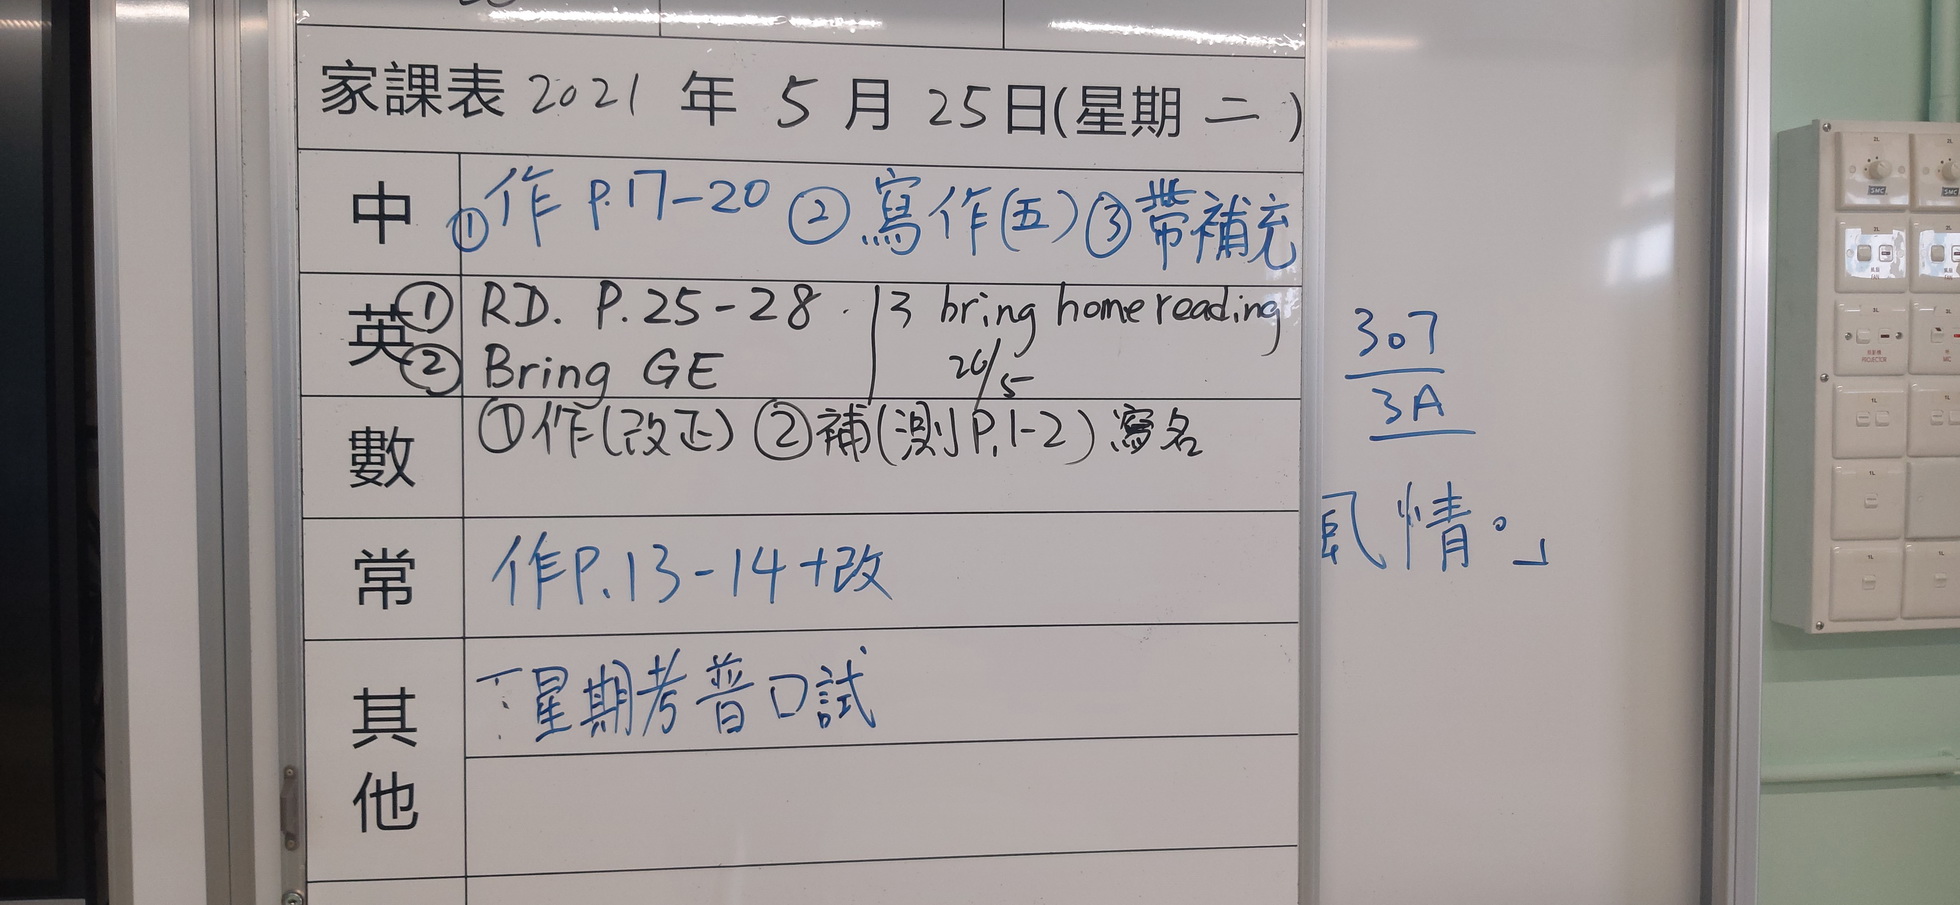 家課表 2021 年 5 月 25 日(星期 二 )
中 ①作 P.17-20 ②寫作(五) ③帶補充
英 ① RD. P.25-28. 3 bring home reading 26/5
② Bring GE
數 ①作(改正) ②補(測 P.1-2) 寫名
常 作P.13-14+改
其他 下星期考普口試
307
3A
風情。」